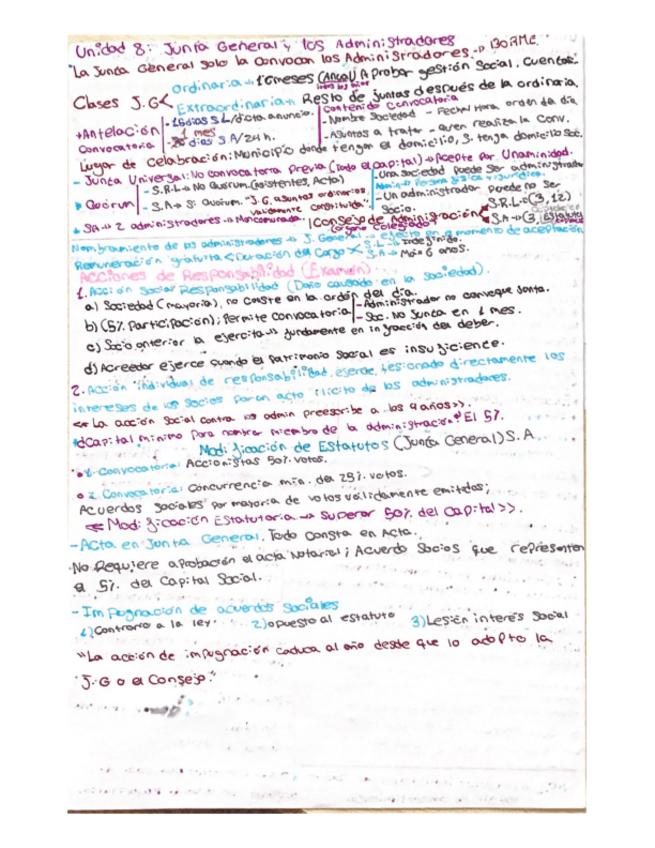 Unidad 8: Junta General y los Administradores
"La Junta General solo la convocan los Administradores → BORME.
Clases J.G < ordinaria → 1º 6 meses (Anual) Aprobar gestión Social. Cuentas.
Extraordinaria → Resto de juntas después de la ordinaria.
+Antelación Convocatoria
-15 días S.L/dicta anuncio.
1 mes
días S.A/24h.
Contenido convocatoria
-Nombre Sociedad - Fecha/Hora orden del día
-Asuntos a tratar - quien realiza la Conv.
Lugar de Celebración: Municipio donde tengan el domicilio, S. tenga domicilio Soc.
- Junta Universal: No convocatoria Previa (Todo el capital) → Acepte por Unanimidad.
Quórum
- S.R.L → No Quorum. (Asistentes, Acta)
- S.A → Si Quorum. "J.G asuntos ordinarios, validamente constituida".
Una sociedad puede ser administrador
- Un administrador puede no ser Socio.
* SA → 2 administradores → Mancomunada. | Consejo de Administración
S.R.L → (3, 12)
S.A → (3, Estatutos)
(órgano Colegiado)
Nombramiento de los administradores → J. General → efecto en el momento de aceptación
Remuneración gratuita < Duración del Cargo < S.L → Indefinido.
S.A → Max 6 años.
Acciones de Responsabilidad (Examen)
1. Acción Social Responsabilidad (Daño causado en la sociedad).
a) Sociedad (mayoría), no conste en la orden del día.
b) (5% Participación); Permite convocatoria
- Administrador no convoque Junta.
- Soc. No Junta en 1 mes.
c) Socio anterior la ejercita → fundamente en infracción del deber.
d) Acreedor ejerce cuando el patrimonio social es insuficiente.
2. Acción individual de responsabilidad, ejerce, lesionado directamente los
intereses de los socios por un acto ilícito de los administradores.
<< La acción Social contra los admin preescribe a los 4 años>>.
Capital mínimo para nombrar miembro de la administración? El 5%.
Modificación de Estatutos (Junta General) S.A.
1. Convocatoria: Accionistas 50% votos.
2. Convocatoria: Concurrencia min. del 25% votos.
Acuerdos Sociales por mayoria de votos válidamente emitidos;
<< Modificación Estatutaria → Superar 50% del Capital>>.
- Acta en Junta General. Todo Consta en Acta.
No Requiere aprobación el acta Notarial; Acuerdo Socios que representen
el 5% del Capital Social.
- Impugnación de acuerdos Sociales
1) Contrario a la ley. 2) opuesto al estatuto 3) Lesión interés Social
"La acción de impugnación caduca al año desde que lo adopto la
J.G o el Consejo."